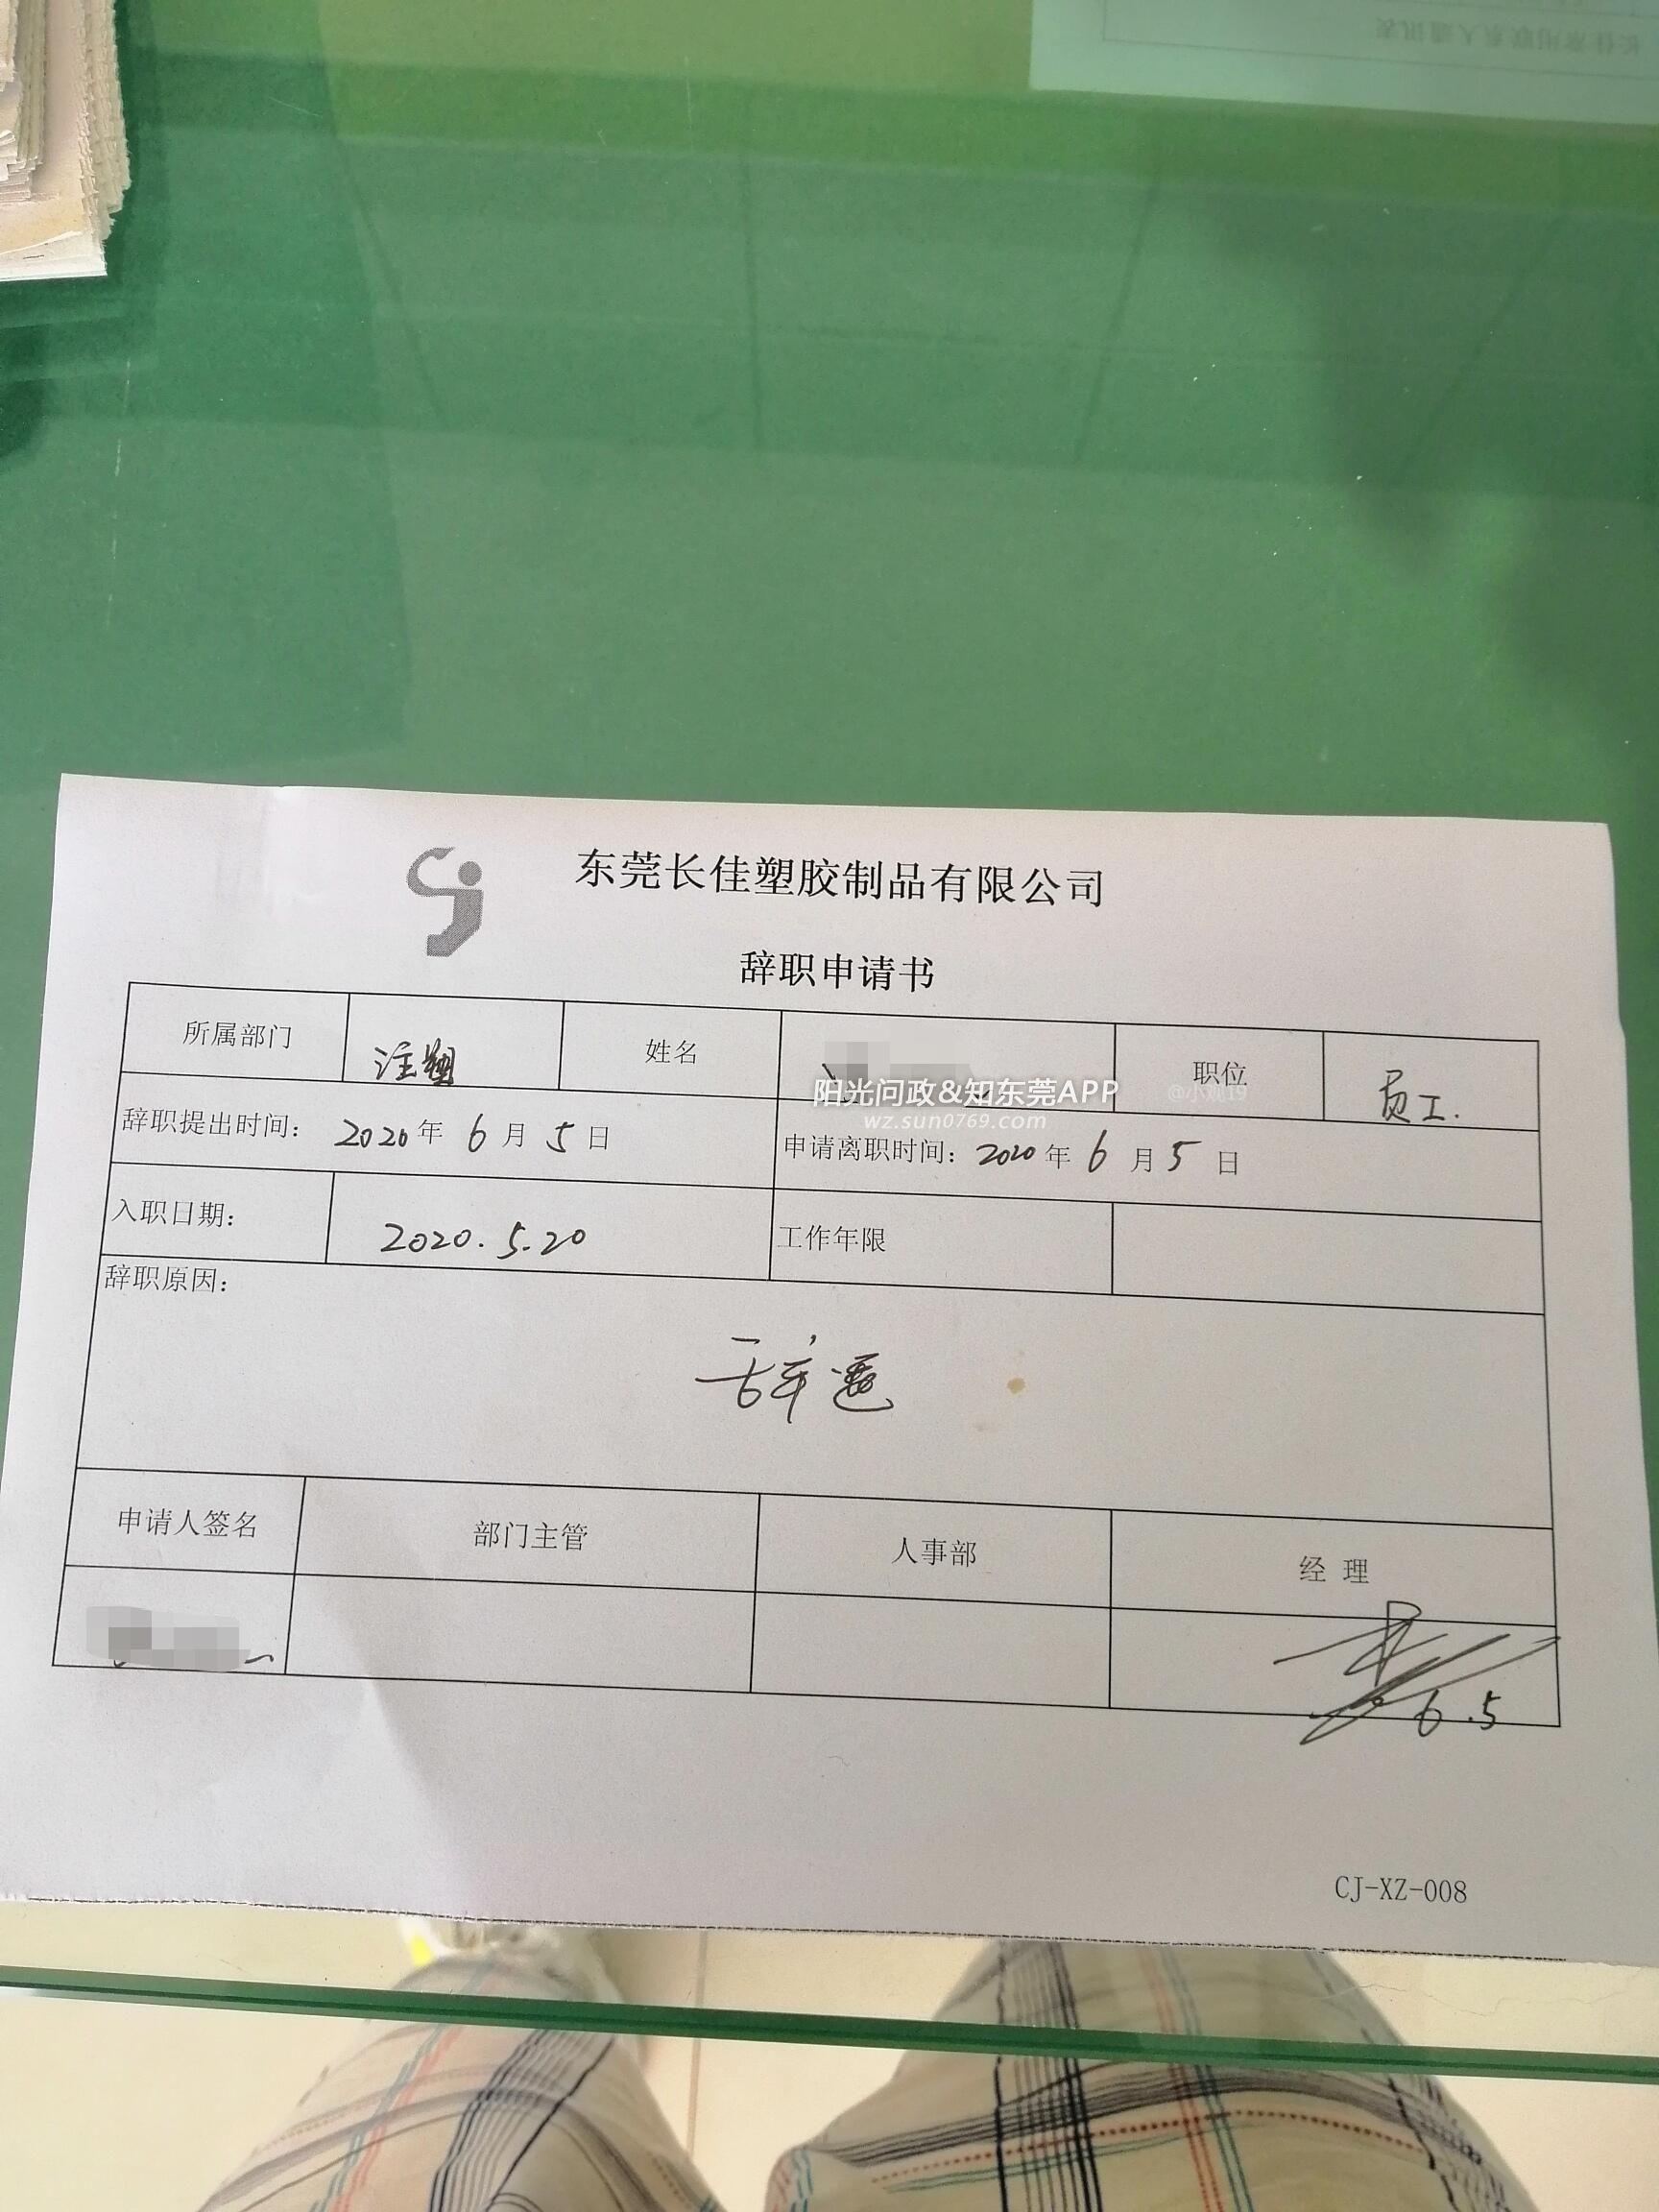 长佳常用联系人通讯表
东莞长佳塑胶制品有限公司
辞职申请书
所属部门 注塑 姓名 职位 员工.
阳光问政&知东莞APP
wz.sun0769.com
辞职提出时间: 2020年 6月 5日 申请离职时间: 2020年 6月 5日
入职日期: 2020.5.20 工作年限
辞职原因:
辞退
申请人签名 部门主管 人事部 经理
6.5
CJ-XZ-008